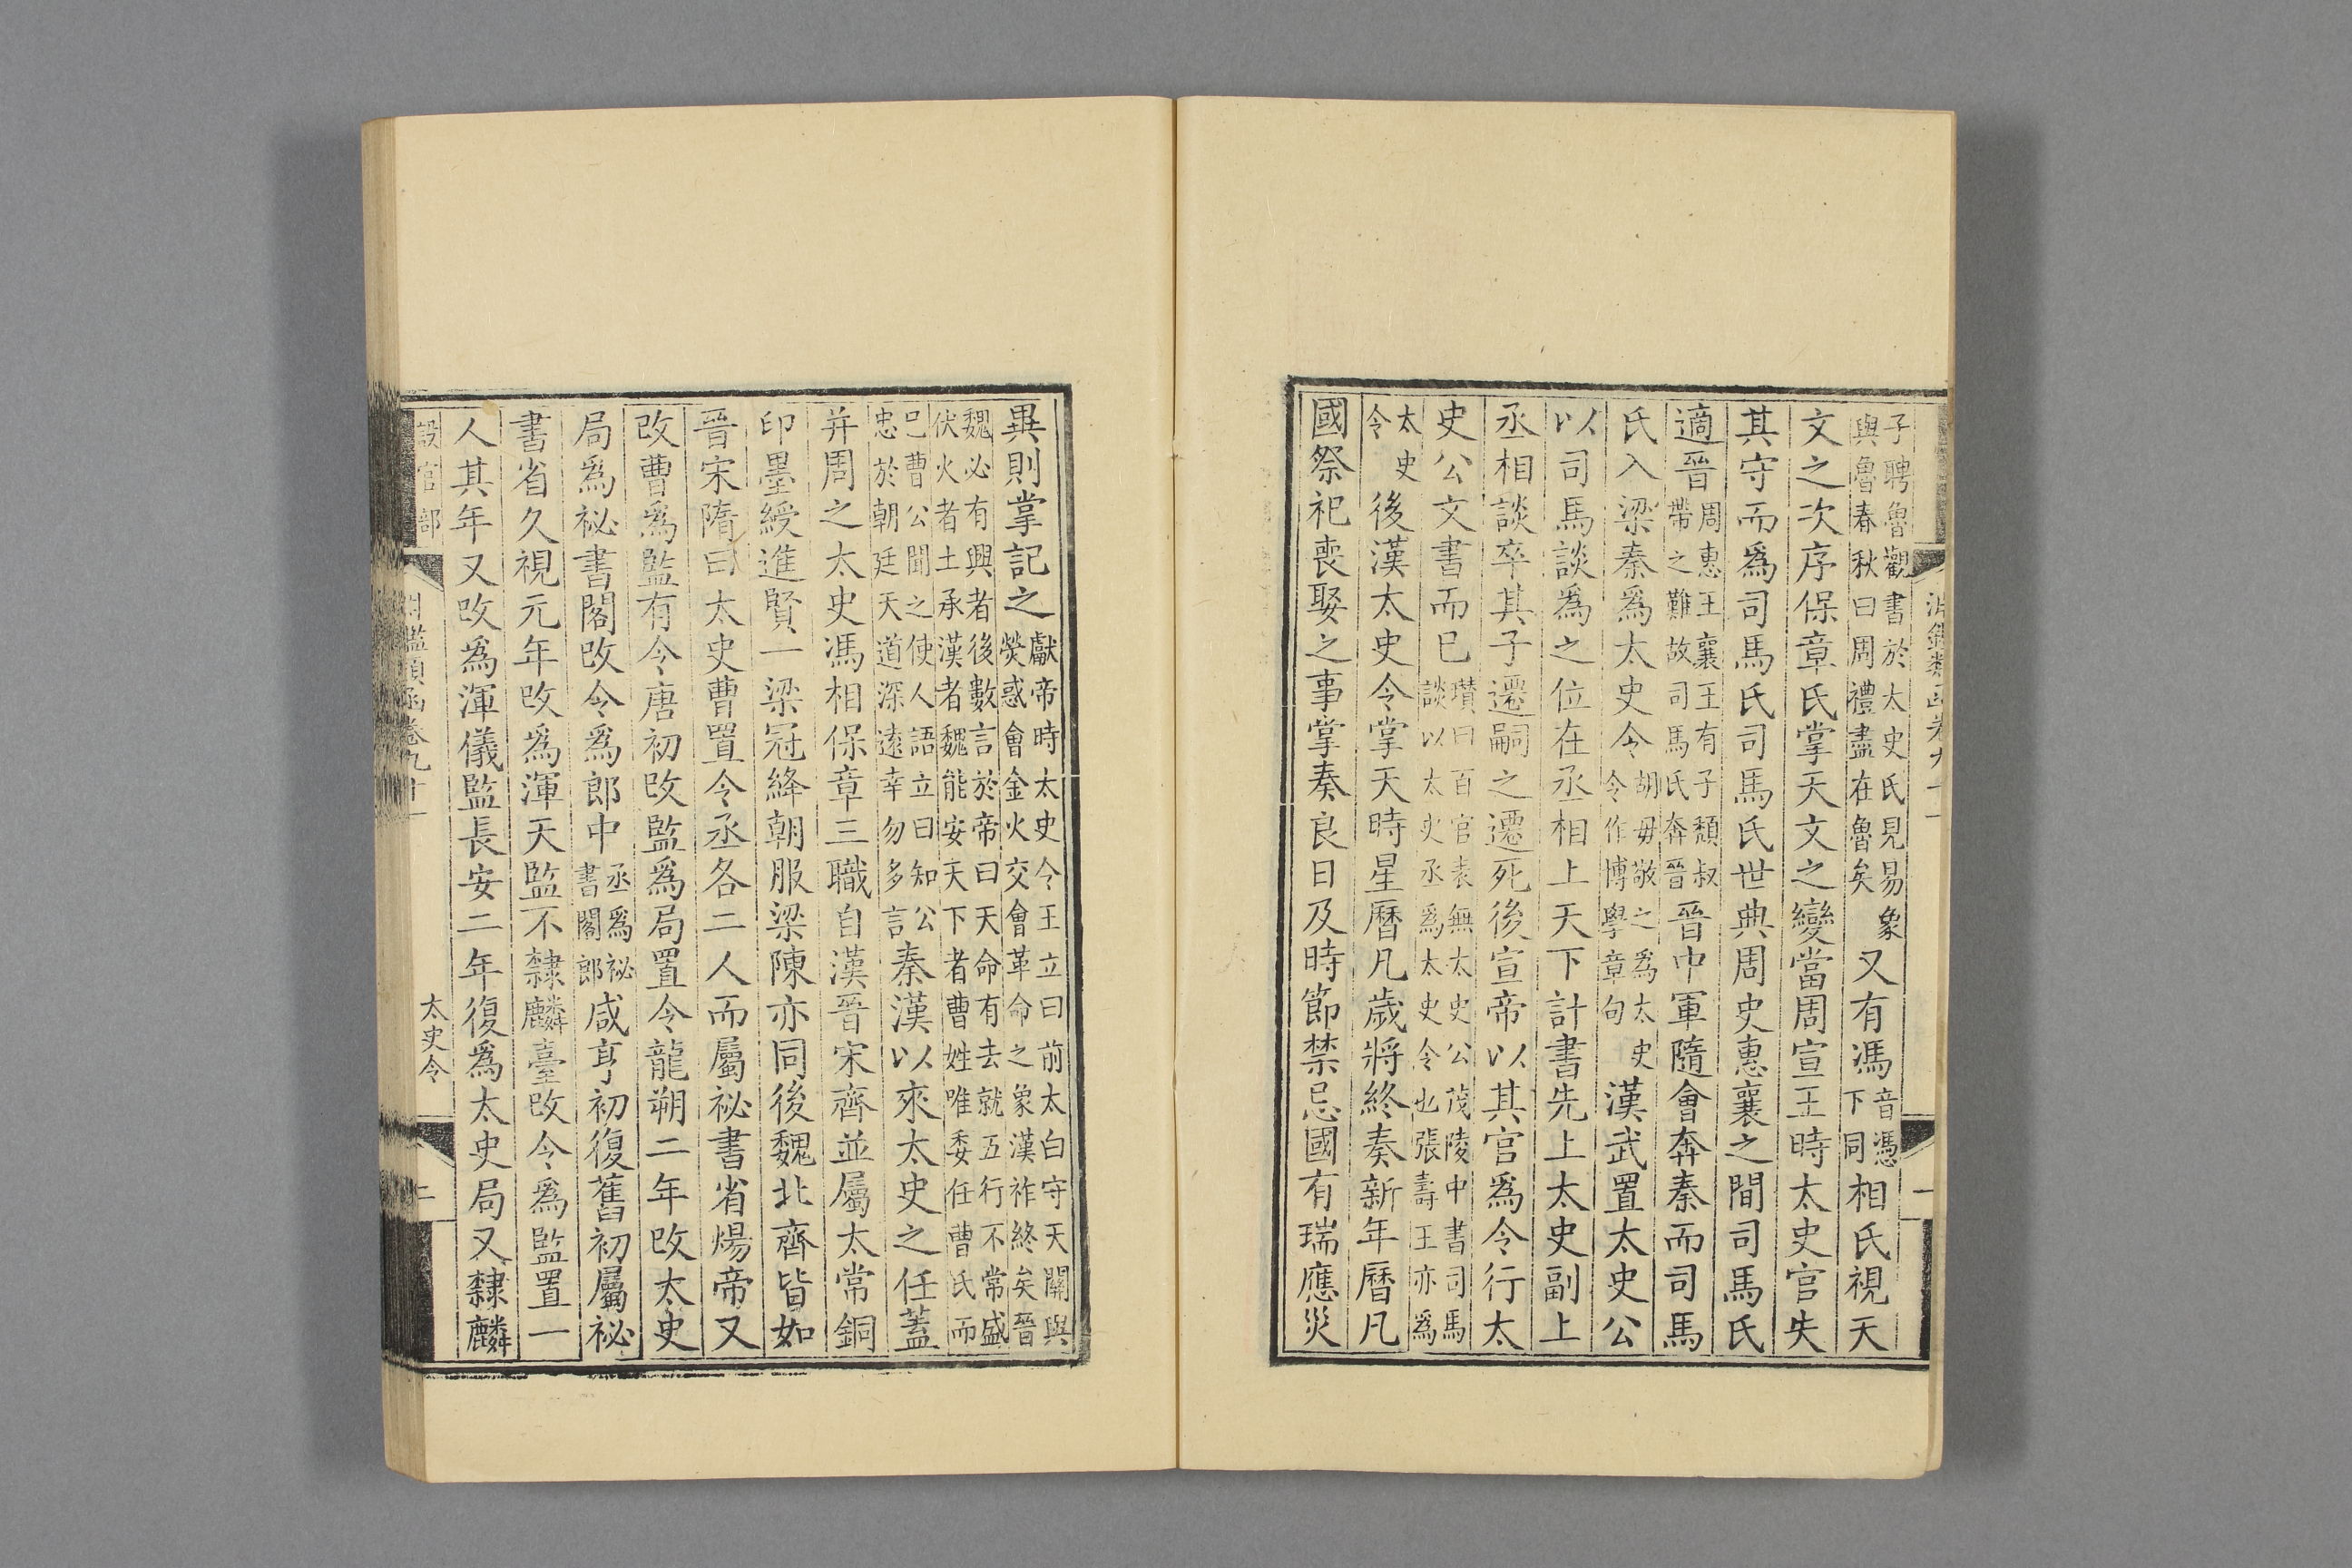 子聘魯觀書於太史氏見易象
與魯春秋曰周禮盡在魯矣
又有馮
音憑
下同
相氏視天
文之次序保章氏掌天文之變當周宣王時太史官失
其守而爲司馬氏司馬氏世典周史惠襄之間司馬氏
適晉
周惠王襄王有子頹叔
帶之難故司馬氏奔晉
晉中軍隨會奔秦而司馬
氏入梁秦爲太史令
胡毋敬之爲太史
令作博學章句
漢武置太史公
以司馬談爲之位在丞相上天下計書先上太史副上
丞相談卒其子遷嗣之遷死後宣帝以其官爲令行太
史公文書而已
瓚曰百官表無太史公茂陵中書司馬
談以太史丞爲太史令也張壽王亦爲
太史
令
後漢太史令掌天時星曆凡歲將終奏新年曆凡
國祭祀喪娶之事掌奏良日及時節禁忌國有瑞應災
異則掌記之
獻帝時太史令王立曰前太白守天關與
熒惑會金火交會革命之象漢祚終矣晉
魏必有興者後數言於帝曰天命有去就五行不常盛
伏火者土承漢者魏能安天下者曹姓唯委任曹氏而
已曹公聞之使人語立曰知公
忠於朝廷天道深遠幸勿多言
秦漢以來太史之任蓋
并周之太史馮相保章三職自漢晉宋齊並屬太常銅
印墨綬進賢一梁冠絳朝服梁陳亦同後魏北齊皆如
晉宋隋曰太史曹置令丞各二人而屬祕書省煬帝又
改曹爲監有令唐初改監爲局置令龍朔二年改太史
局爲祕書閣改令爲郎中
丞爲祕
書閣郎
咸亨初復舊初屬祕
書省久視元年改爲渾天監不隸麟臺改令爲監置一
人其年又改爲渾儀監長安二年復爲太史局又隸麟
設官部
太史令
二